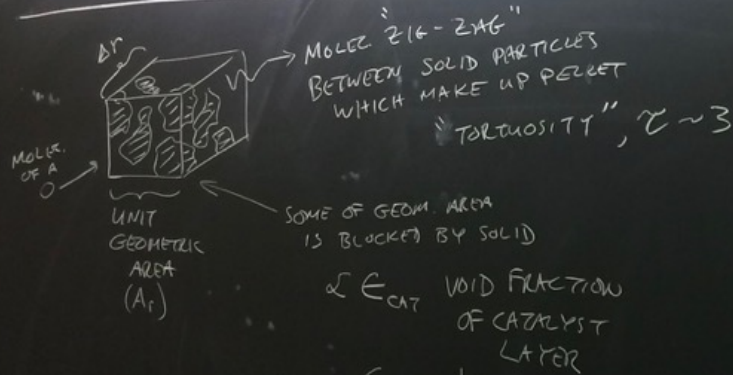 Δr
MOLEC. "ZIG-ZAG"
BETWEEN SOLID PARTICLES
WHICH MAKE UP PELLET
"TORTUOSITY", τ ~ 3
MOLEC.
OF A
UNIT
GEOMETRIC
AREA
(Ar)
SOME OF GEOM. AREA
IS BLOCKED BY SOLID
∝ ϵCAT VOID FRACTION
OF CATALYST
LAYER